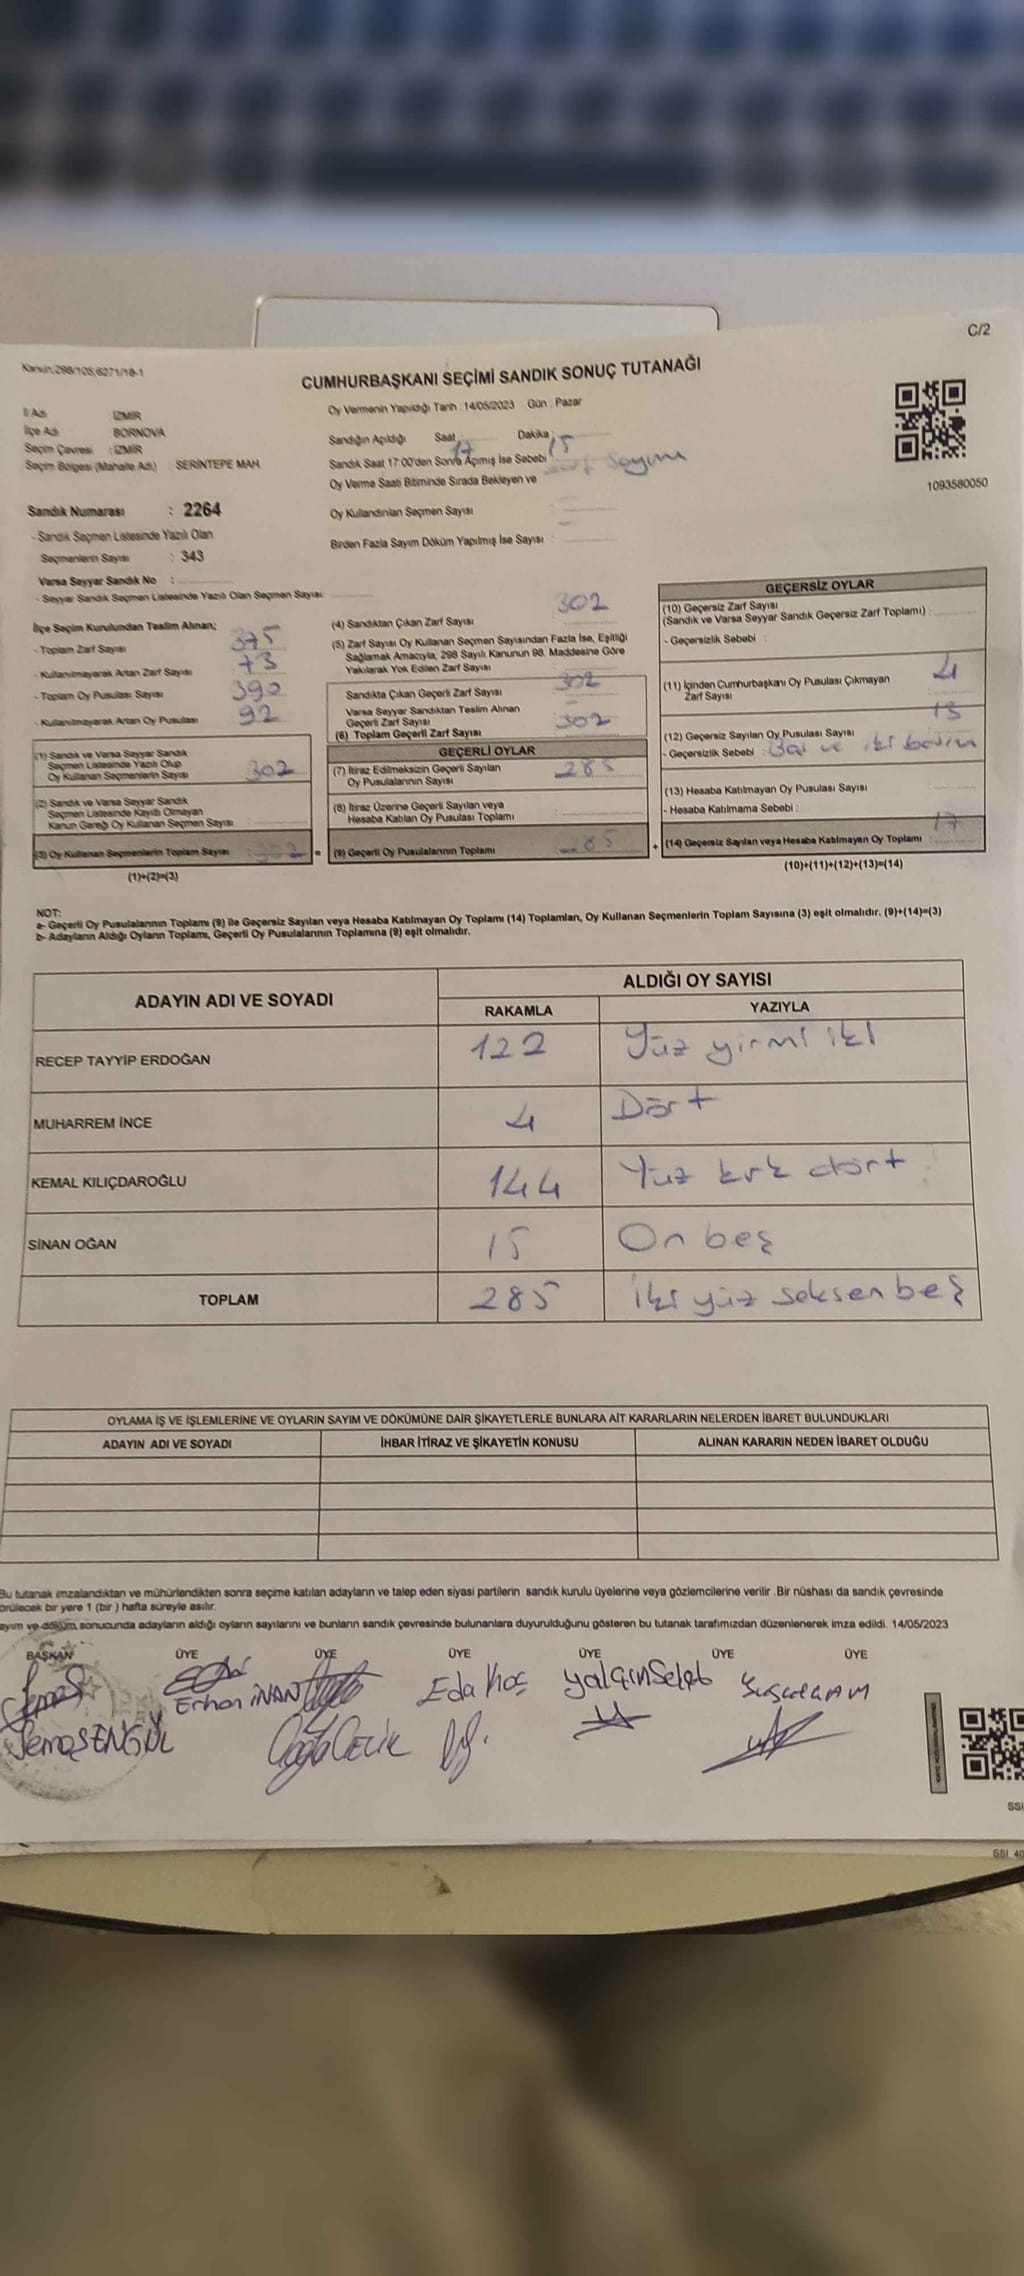 C/2
Kanun:298/105;6271/18-1
CUMHURBAŞKANI SEÇİMİ SANDIK SONUÇ TUTANAĞI
İl Adı : İZMİR
İlçe Adı : BORNOVA
Seçim Çevresi : İZMİR
Seçim Bölgesi (Mahalle Adı) : SERİNTEPE MAH.
Oy Vermenin Yapıldığı Tarih : 14/05/2023 Gün : Pazar
Sandığın Açıldığı Saat 17 Dakika : 15
Sandık Saat 17:00'den Sonra Açımış İse Sebebi : zarf sayımı
Oy Verme Saati Bitiminde Sırada Bekleyen ve
Oy Kullandırılan Seçmen Sayısı :
Birden Fazla Sayım Döküm Yapılmış İse Sayısı :
1093580050
Sandık Numarası : 2264
- Sandık Seçmen Listesinde Yazılı Olan
Seçmenlerin Sayısı : 343
Varsa Seyyar Sandık No :
- Seyyar Sandık Seçmen Listesinde Yazılı Olan Seçmen Sayısı
İlçe Seçim Kurulundan Teslim Alınan;
- Toplam Zarf Sayısı 375
- Kullanılmayarak Artan Zarf Sayısı 73
- Toplam Oy Pusulası Sayısı 390
- Kullanılmayarak Artan Oy Pusulası 92
(1) Sandık ve Varsa Seyyar Sandık
Seçmen Listesinde Yazılı Olup
Oy Kullanan Seçmenlerin Sayısı 302
(2) Sandık ve Varsa Seyyar Sandık
Seçmen Listesinde Kayıtlı Olmayan
Kanun Gereği Oy Kullanan Seçmen Sayısı
(3) Oy Kullanan Seçmenlerin Toplam Sayısı : 302 =
(1)+(2)=(3)
(4) Sandıktan Çıkan Zarf Sayısı 302
(5) Zarf Sayısı Oy Kullanan Seçmen Sayısından Fazla İse, Eşitliği
Sağlamak Amacıyla, 298 Sayılı Kanunun 98. Maddesine Göre
Yakılarak Yok Edilen Zarf Sayısı
Sandıkta Çıkan Geçerli Zarf Sayısı 302
Varsa Seyyar Sandıktan Teslim Alınan
Geçerli Zarf Sayısı
(6) Toplam Geçerli Zarf Sayısı 302
GEÇERLİ OYLAR
(7) İtiraz Edilmeksizin Geçerli Sayılan
Oy Pusulalarının Sayısı 285
(8) İtiraz Üzerine Geçerli Sayılan veya
Hesaba Katılan Oy Pusulası Toplamı
(9) Geçerli Oy Pusulalarının Toplamı 285 +
GEÇERSİZ OYLAR
(10) Geçersiz Zarf Sayısı
(Sandık ve Varsa Seyyar Sandık Geçersiz Zarf Toplamı) :
- Geçersizlik Sebebi :
(11) İçinden Cumhurbaşkanı Oy Pusulası Çıkmayan 4
Zarf Sayısı
(12) Geçersiz Sayılan Oy Pusulası Sayısı 13
- Geçersizlik Sebebi : ve iki
(13) Hesaba Katılmayan Oy Pusulası Sayısı :
- Hesaba Katılmama Sebebi :
(14) Geçersiz Sayılan veya Hesaba Katılmayan Oy Toplamı : 17
(10)+(11)+(12)+(13)=(14)
NOT:
a- Geçerli Oy Pusulalarının Toplamı (9) ile Geçersiz Sayılan veya Hesaba Katılmayan Oy Toplamı (14) Toplamları, Oy Kullanan Seçmenlerin Toplam Sayısına (3) eşit olmalıdır. (9)+(14)=(3)
b- Adayların Aldığı Oyların Toplamı, Geçerli Oy Pusulalarının Toplamına (9) eşit olmalıdır.
ADAYIN ADI VE SOYADI ALDIĞI OY SAYISI
RAKAMLA YAZIYLA
RECEP TAYYİP ERDOĞAN 122 Yüz yirmi iki
MUHARREM İNCE 4 Dört
KEMAL KILIÇDAROĞLU 144 Yüz kırk dört
SİNAN OĞAN 15 On beş
TOPLAM 285 iki yüz seksen beş
OYLAMA İŞ VE İŞLEMLERİNE VE OYLARIN SAYIM VE DÖKÜMÜNE DAİR ŞİKAYETLERLE BUNLARA AİT KARARLARIN NELERDEN İBARET BULUNDUKLARI
ADAYIN ADI VE SOYADI İHBAR İTİRAZ VE ŞİKAYETİN KONUSU ALINAN KARARIN NEDEN İBARET OLDUĞU
Bu tutanak imzalandıktan ve mühürlendikten sonra seçime katılan adayların ve talep eden siyasi partilerin sandık kurulu üyelerine veya gözlemcilerine verilir .Bir nüshası da sandık çevresinde
örülecek bir yere 1 (bir ) hafta süreyle asılır.
ayım ve döküm sonucunda adayların aldığı oyların sayılarını ve bunların sandık çevresinde bulunanlara duyurulduğunu gösteren bu tutanak tarafımızdan düzenlenerek imza edildi. 14/05/2023
BAŞKAN ÜYE ÜYE ÜYE ÜYE ÜYE ÜYE
Erhan İNAN Eda Koç Yalçın
ŞENGÜL
SSI
SSI 40